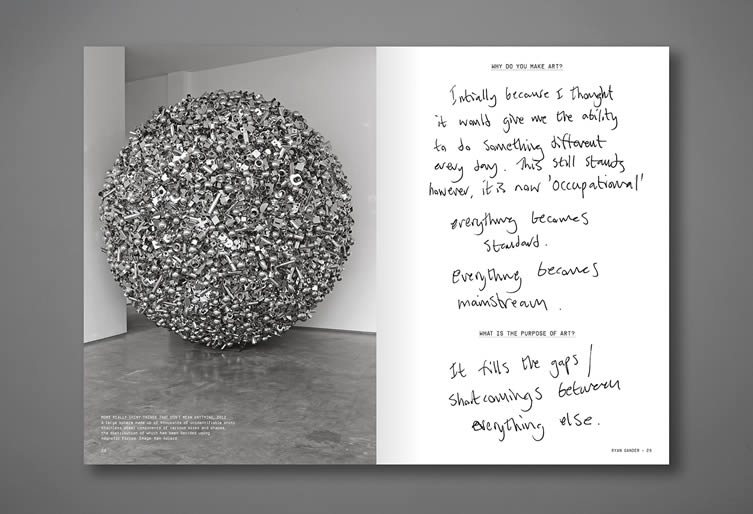 MORE REALLY SHINY THINGS THAT DON'T MEAN ANYTHING, 2012
A large sphere made up of thousands of unidentifiable shiny
stainless steel components of various sizes and shapes,
the distribution of which has been decided using
magnetic forces. Image: Ken Adlard
28
WHY DO YOU MAKE ART?
Intially because I thought
it would give me the ability
to do something different
every day. This still stands
however, it is now 'occupational'
everything becomes
standard.
Everything becomes
mainstream.
WHAT IS THE PURPOSE OF ART?
It fills the gaps /
shortcomings between
everything else.
RYAN GANDER - 29